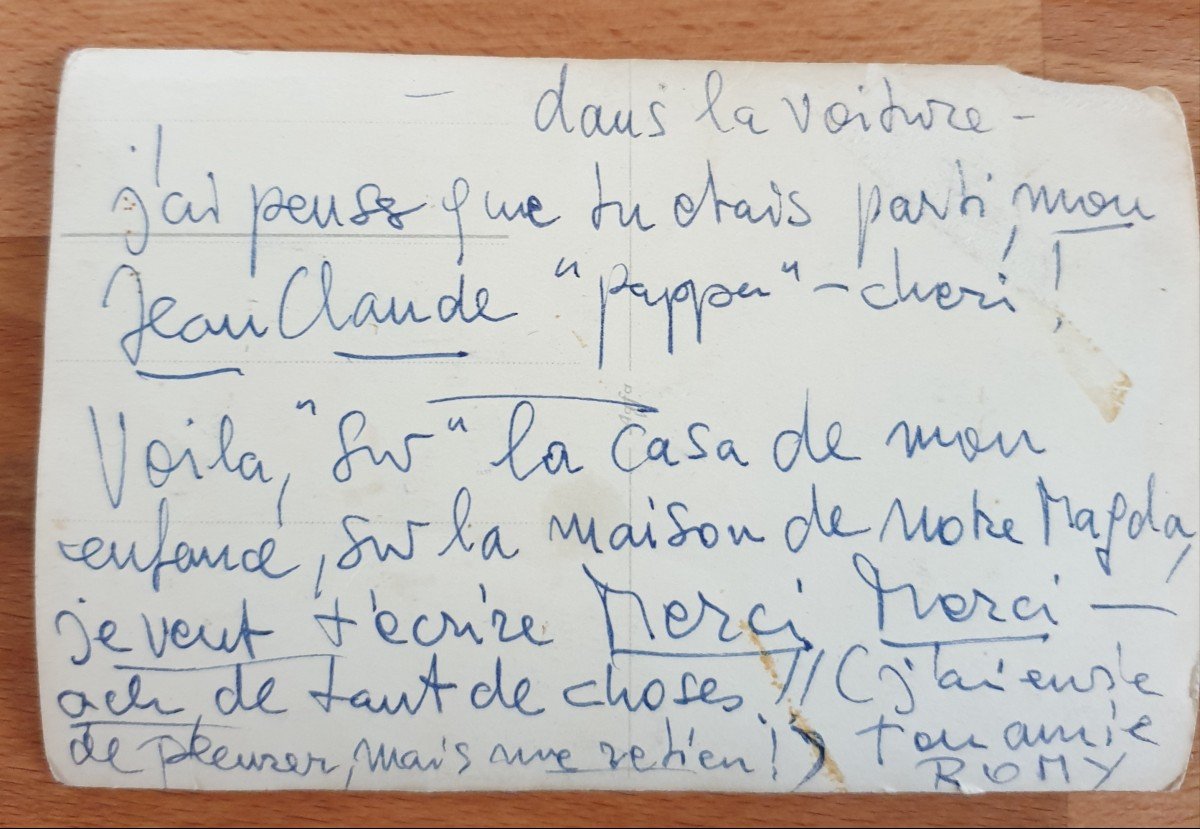 — dans la voiture –
j'ai pensé que tu etais parti, mon
Jean Claude "pappa" – cheri !
Voila, "sur" la casa de mon
enfance, sur la maison de notre Magda,
je veut t'écrire Merci Merci —
ach, de tant de choses !! (j'ai envie
de pleurer, mais me retien !) ton amie
ROMY
Agfa